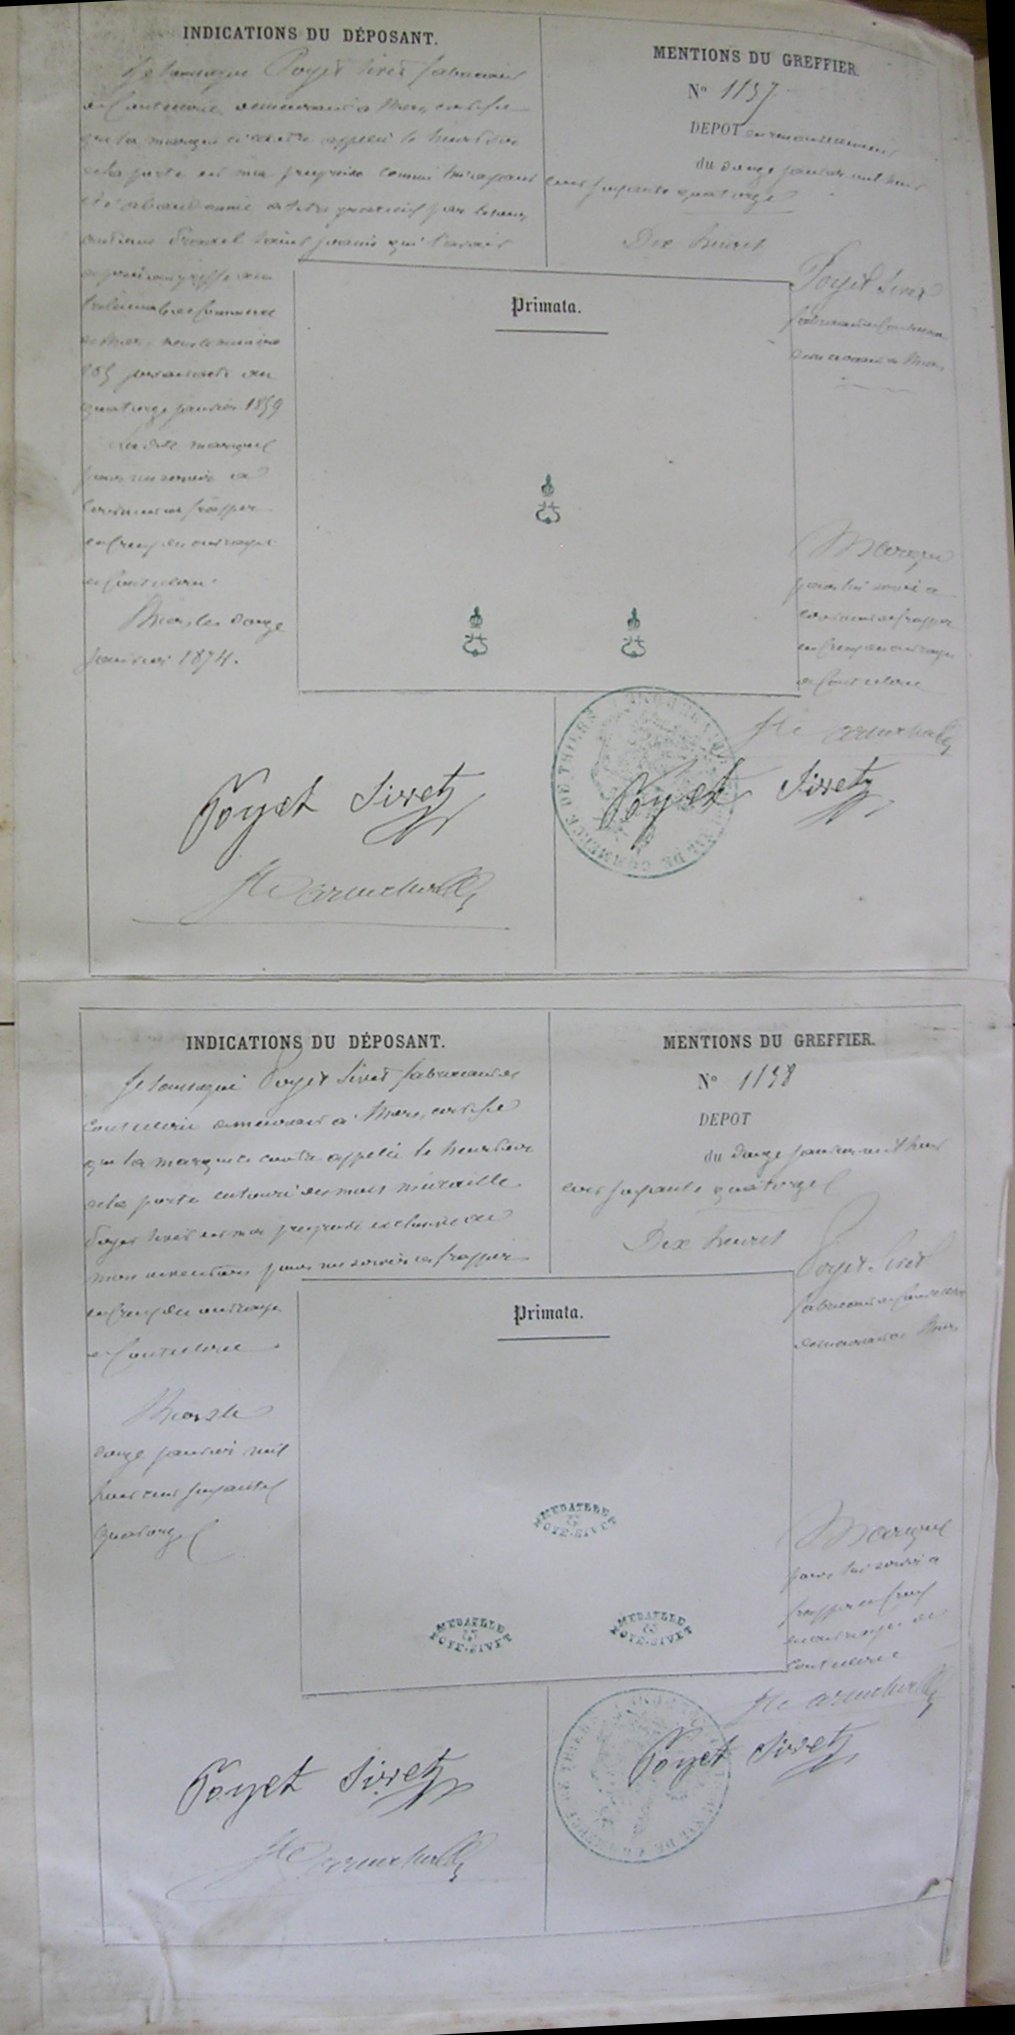 INDICATIONS DU DÉPOSANT.
Je soussigné Poyet Sivet fabricant
de Coutellerie demeurant à Thiers, certifie
que la marque ci contre appelée le heurtoir
de la porte est ma propriété comme m'ayant
été abandonnée à titre par
qui l'avait
au greffe du
tribunal de Commerce
de Thiers, sous le numéro
du
quatorze janvier 1859
La dite marque
pour me servir à
continuer à frapper
en creux des ouvrages
de Coutellerie.
Thiers le douze
janvier 1874.
MENTIONS DU GREFFIER.
N° 1137
DEPOT en renouvellement
du douze janvier mil huit
cent soixante quatorze
Dix heures
Poyet Sivet
fabricant de Coutellerie
demeurant à Thiers
Primata.
Marque
pour lui servir à
continuer à frapper
en creux des ouvrages
de Coutellerie
Poyet Sivet
Poyet Sivet
TRIBUNAL DE COMMERCE DE THIERS
INDICATIONS DU DÉPOSANT.
Je soussigné Poyet Sivet fabricant de
Coutellerie demeurant à Thiers, certifie
que la marque ci contre appelée le heurtoir
de la porte entouré des mots médaille
Poyet Sivet est ma propriété exclusive de
mon invention pour me servir à frapper
en creux des ouvrages
de Coutellerie
Thiers le
douze janvier mil
huit cent soixante
quatorze
MENTIONS DU GREFFIER.
N° 1138
DEPOT
du douze janvier mil huit
cent soixante quatorze
Dix heures
Poyet Sivet
fabricant de Coutellerie
demeurant à Thiers
Primata.
MEDAILLE
POYE-SIVET
MEDAILLE
POYE-SIVET
MEDAILLE
POYE-SIVET
Marque
pour lui servir à
frapper en creux
des ouvrages de
Coutellerie
Poyet Sivet
Poyet Sivet